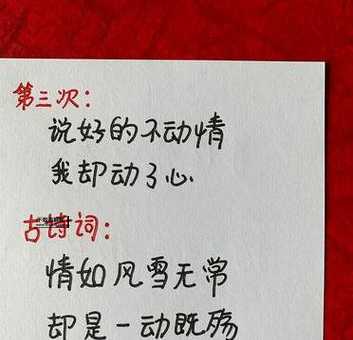 第三次：
说好的不动情
我却动了心
古诗词：
情如风雪无常
却是一动既殇